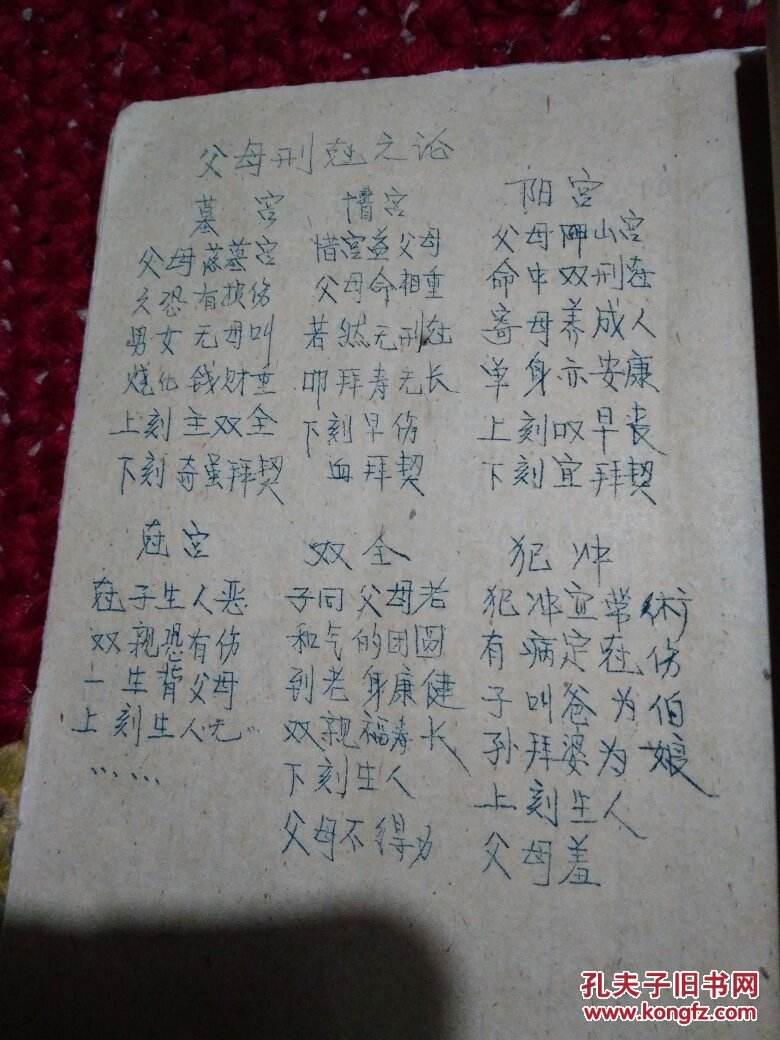 父母刑尅之论
墓宫
父母落墓宫
又恐有损伤
男女无母叫
烧化钱财重
上刻主双全
下刻奇虽拜契
惜宫
惜宫益父母
父母命相重
若然无刑尅
叩拜寿无长
下刻早伤
血拜契
阳宫
父母 山宫
命中双刑尅
寄母养成人
单身亦安康
上刻叹早丧
下刻宜拜契
尅宫
尅子生人恶
双亲恐有伤
一生背父母
上刻生人无..
……
双全
子同父母若
和气的团圆
到老身康健
双亲福寿长
下刻生人
父母不得力
犯冲
犯冲宜带術
有病定尅伤
子叫爸为伯
孙拜婆为娘
上刻生人
父母羞
孔夫子旧书网
www.kongfz.com